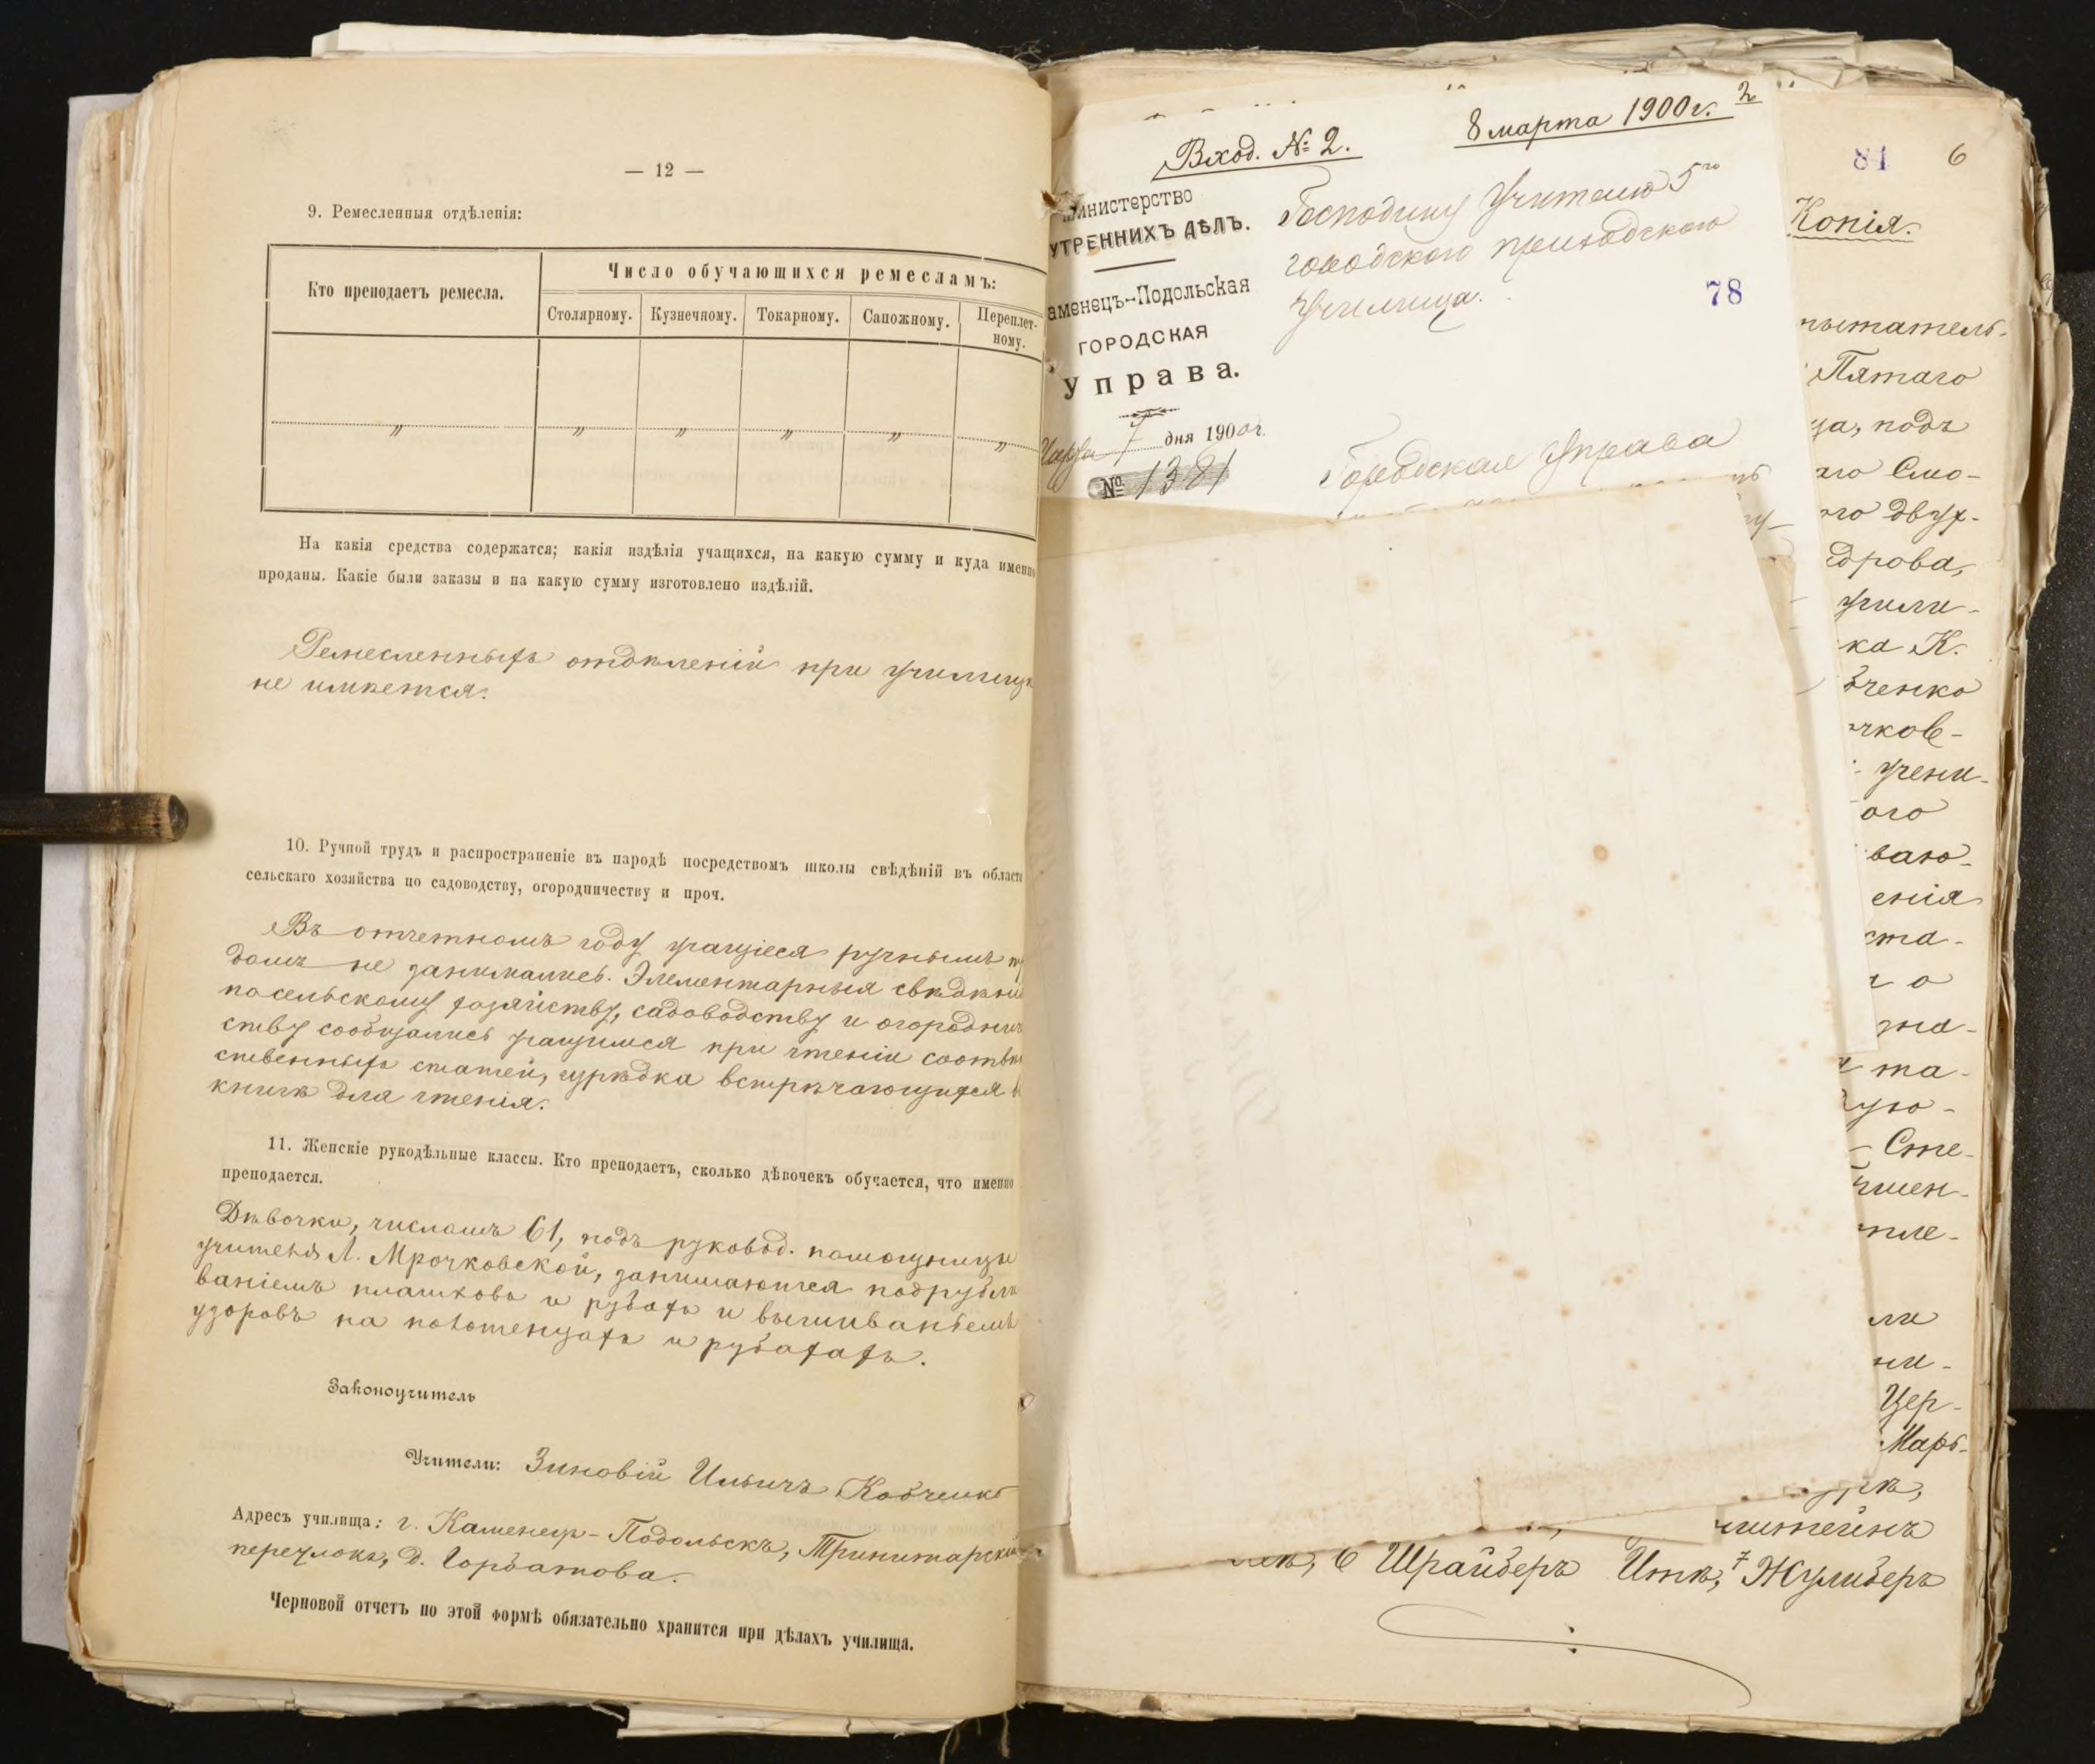 — 12 —
9. Ремесленныя отдѣленія:
Кто преподаетъ ремесла.
Число обучающихся ремесламъ:
Столярному. Кузнечному. Токарному. Сапожному. Переплет-
ному.
" " " " " "
На какія средства содержатся; какія издѣлія учащихся, на какую сумму и куда именно
проданы. Какіе были заказы и на какую сумму изготовлено издѣлій.
Ремесленныхъ отдѣленій при училищѣ
не имѣется.
10. Ручной трудъ и распространеніе въ народѣ посредствомъ школы свѣдѣній въ области
сельскаго хозяйства по садоводству, огородничеству и проч.
Въ отчетномъ году учащіеся ручнымъ тру
домъ не занимались. Элементарныя свѣдѣнія
по сельскому хозяйству, садоводству и огородниче
ству сообщались учащимся при чтеніи соотвѣт
ственныхъ статей, изрѣдка встрѣчающихся въ
книгѣ для чтенія.
11. Женскіе рукодѣльные классы. Кто преподаетъ, сколько дѣвочекъ обучается, что именно
преподается.
Дѣвочки, числомъ 61, подъ руковод. помощницы
учителя Л. Мрочковской, занимаются подрубли
ваніемъ платковъ и рубахъ и вышиваніемъ
узоровъ на полотенцахъ и рубахахъ.
Законоучитель
Учители: Зиновій Ильичъ Кобченко
Адресъ училища: г. Каменец-Подольскъ, Тринитарскій
переулокъ, д. Горбатова.
Черновой отчетъ по этой формѣ обязательно хранится при дѣлахъ училища.
Вход. № 2.
8 марта 1900 г. 2
инистерство
УТРЕННИХЪ ДѢЛЪ.
аменецъ-Подольская
ГОРОДСКАЯ
Управа.
Марта 7 дня 1900 г.
№ 1381
Господину Учителю 5го
городского приходского
училища.
78
Городская Управа
81 6
Копія.
пытатель-
Пятаго
ца, подъ
аго Смо-
ого двух-
дрова,
учили-
ка К.
бченко
чков-
учени-
ого
ваю-
енія
ста-
о
та-
Сте-
мен-
пле-
ли
ни-
Цер-
Марь-
итейнъ
6 Шрайберъ Итъ, 7 Жулиберъ